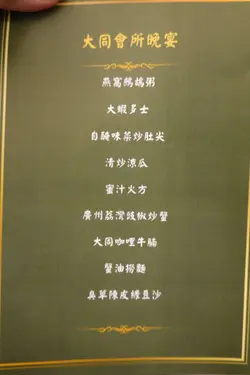 大同會所晚宴
燕窩鷓鴣粥
大蝦多士
自醃味菜炒肚尖
清炒涼瓜
蜜汁火方
廣州荔灣豉椒炒蟹
大同咖喱牛腩
蟹油撈麵
臭草陳皮綠豆沙